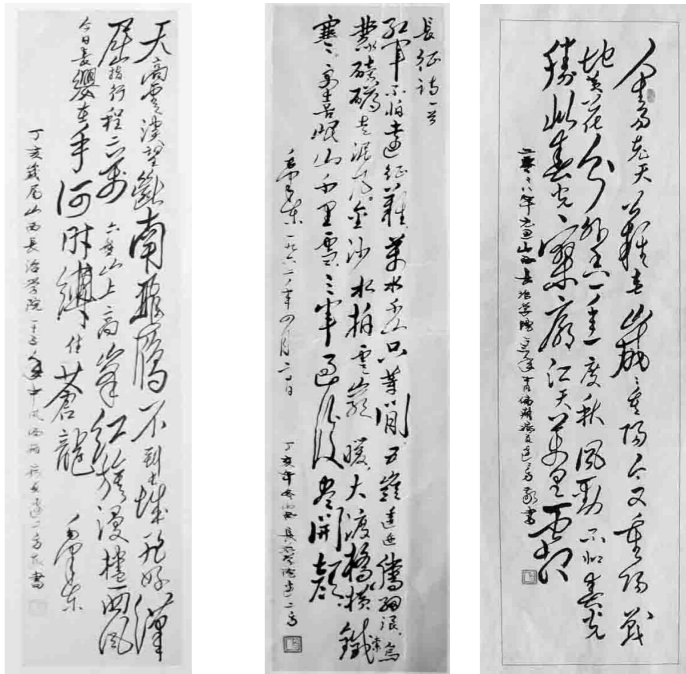 天高雲淡望斷南飛雁不到長城非好漢
屈指行程二萬六盤山上高峰紅旗漫捲西風
今日長纓在手何時縛住蒼龍 毛澤東
丁亥歲尾山西長治學院書
長征詩一首
紅軍不怕遠征難萬水千山只等閒五嶺逶迤騰細浪烏
蒙磅礴走泥丸金沙水拍雲崖暖大渡橋橫鐵索
寒更喜岷山千里雪三軍過後盡開顏
毛澤東一九六二年四月二十日 丁亥年冬山西長治學院
人生易老天難老歲歲重陽今又重陽戰
地黃花分外香一年一度秋風勁不似春光
勝似春光寥廓江天萬里霜
二零零八年元月山西長治學院書